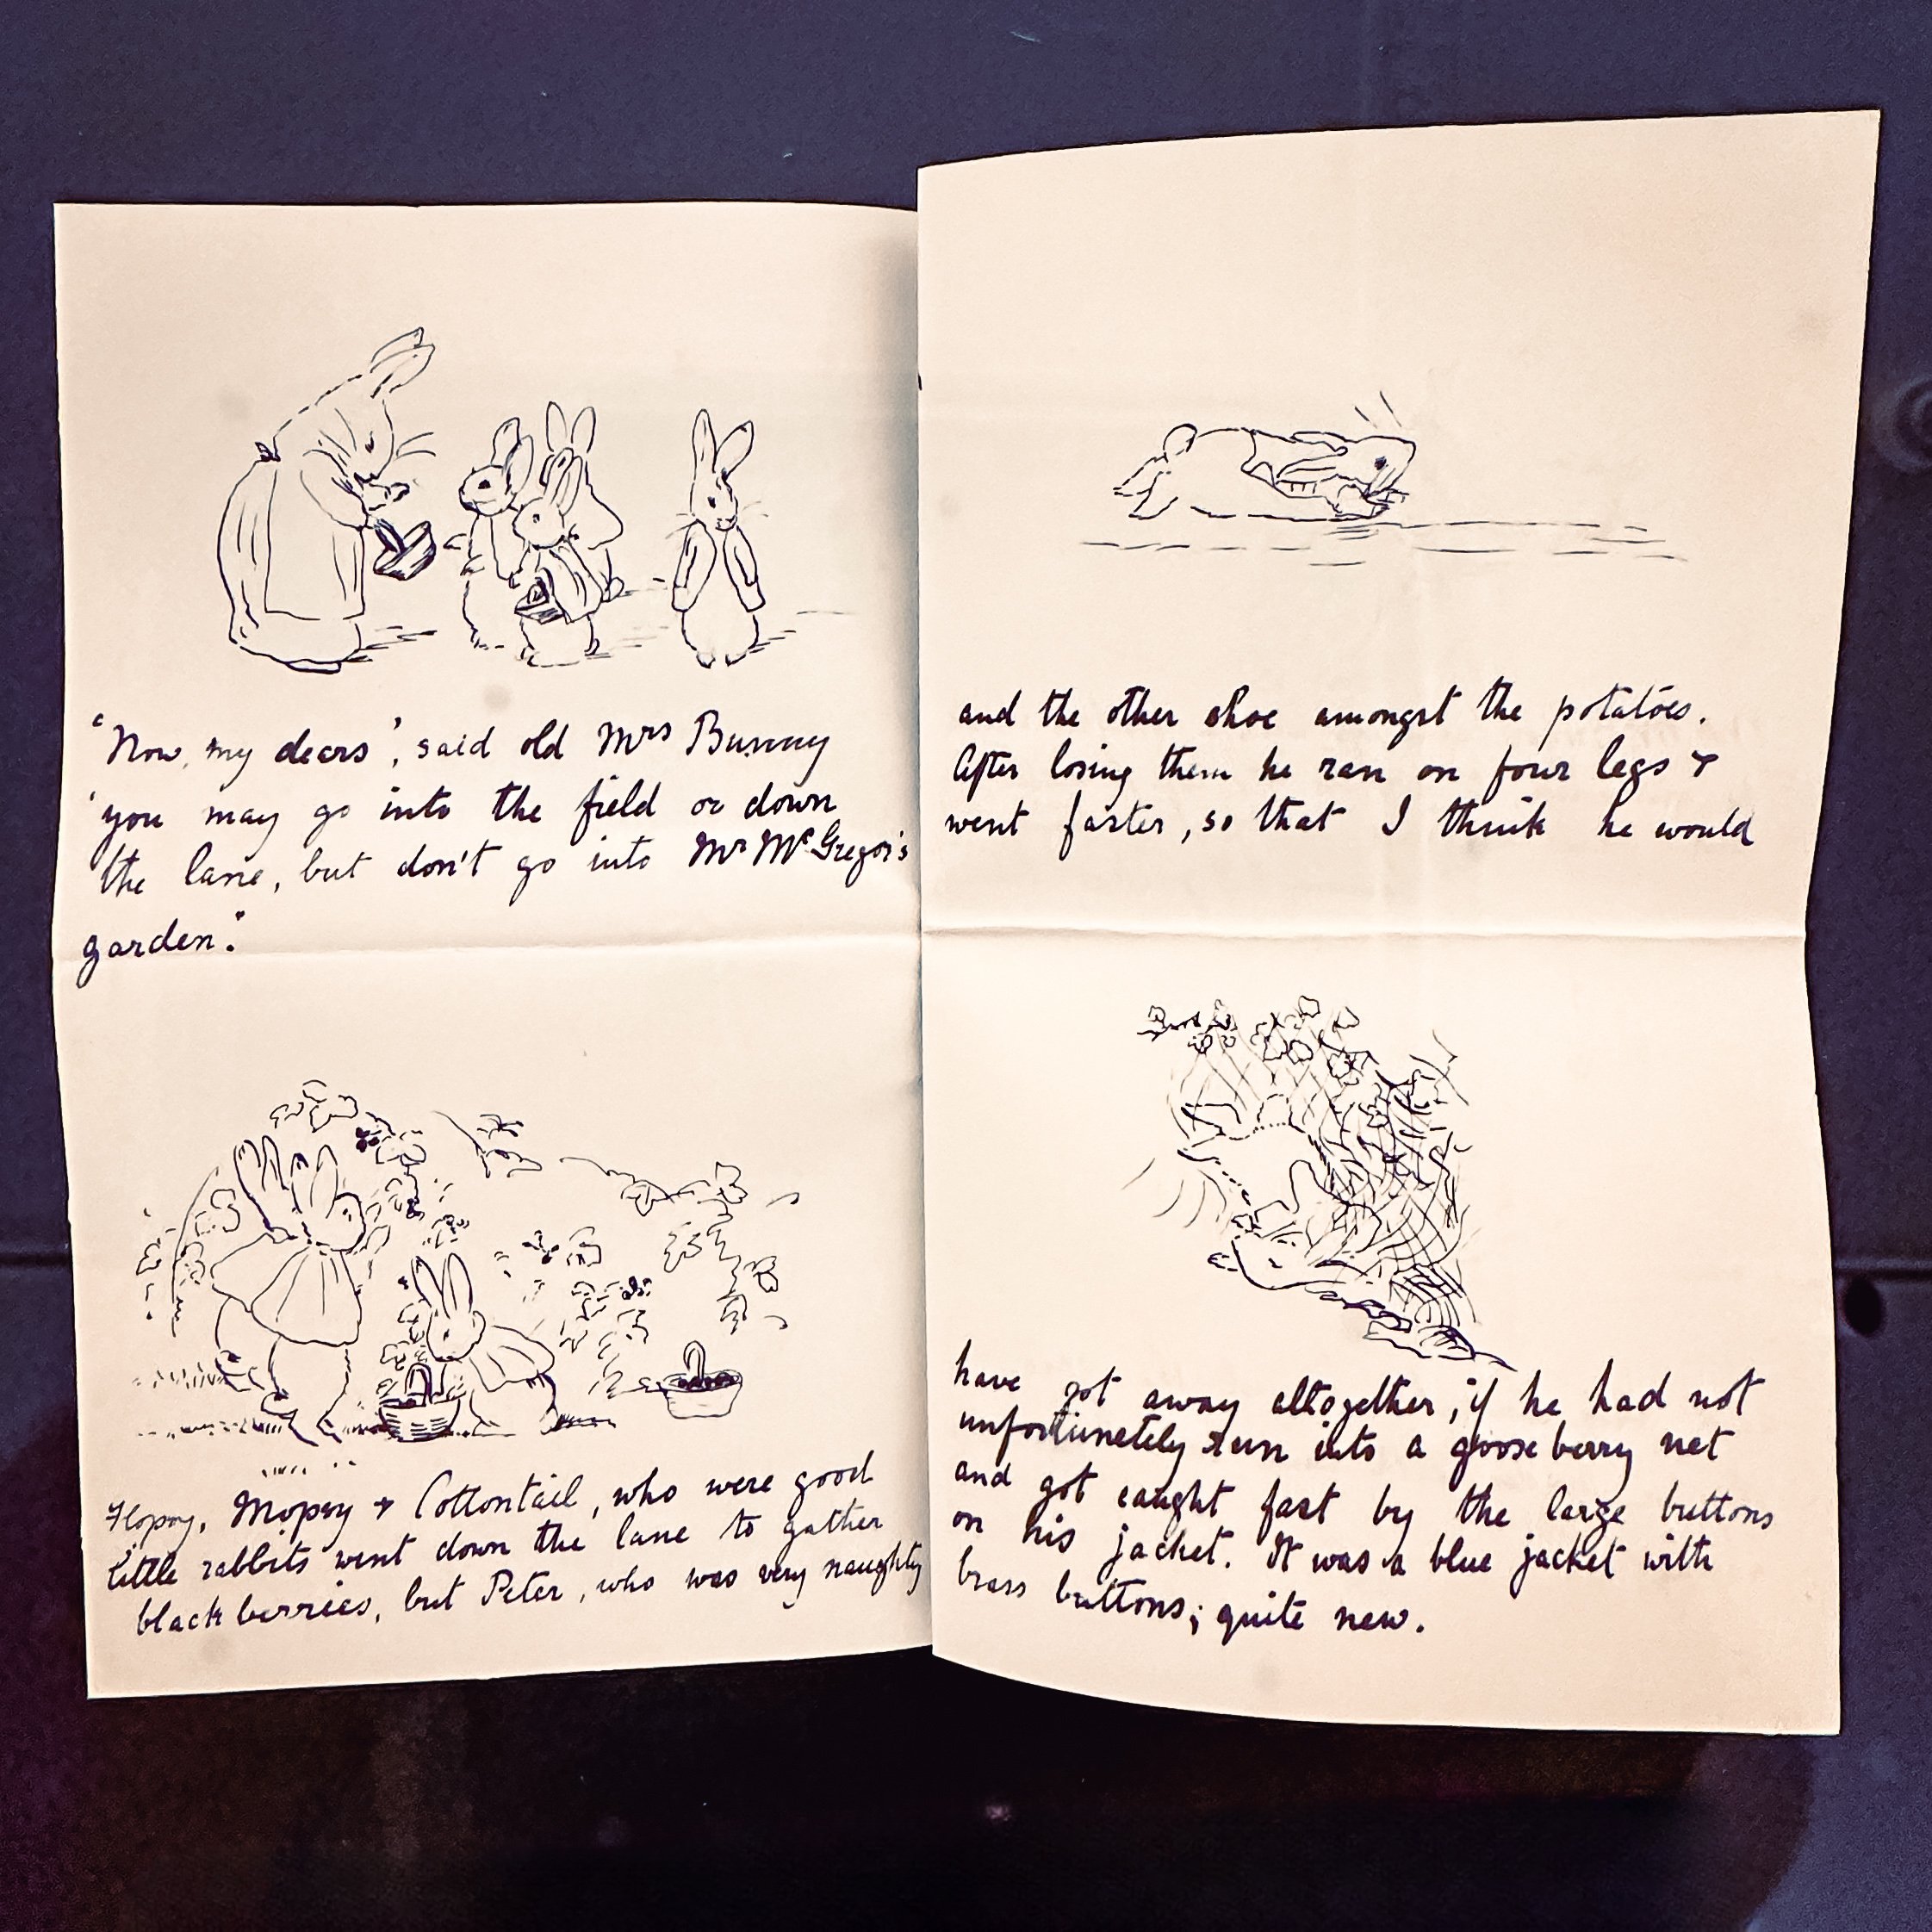 'Now, my dears', said old Mrs Bunny
'you may go into the field or down
the lane, but don't go into Mr McGregor's
garden."
Flopsy, Mopsy + Cottontail, who were good
little rabbits went down the lane to gather
black berries, but Peter, who was very naughty
and the other shoe amongst the potatoes.
After losing them he ran on four legs +
went faster, so that I think he would
have got away altogether, if he had not
unfortunately run into a gooseberry net
and got caught fast by the large buttons
on his jacket. It was a blue jacket with
brass buttons; quite new.